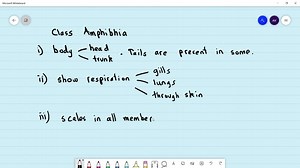 Microsoft Whiteboard
Class Amphibhia
i) body head trunk. Tails are present in some.
ii) show respiration gills lungs through skin
iii) scales in all member.